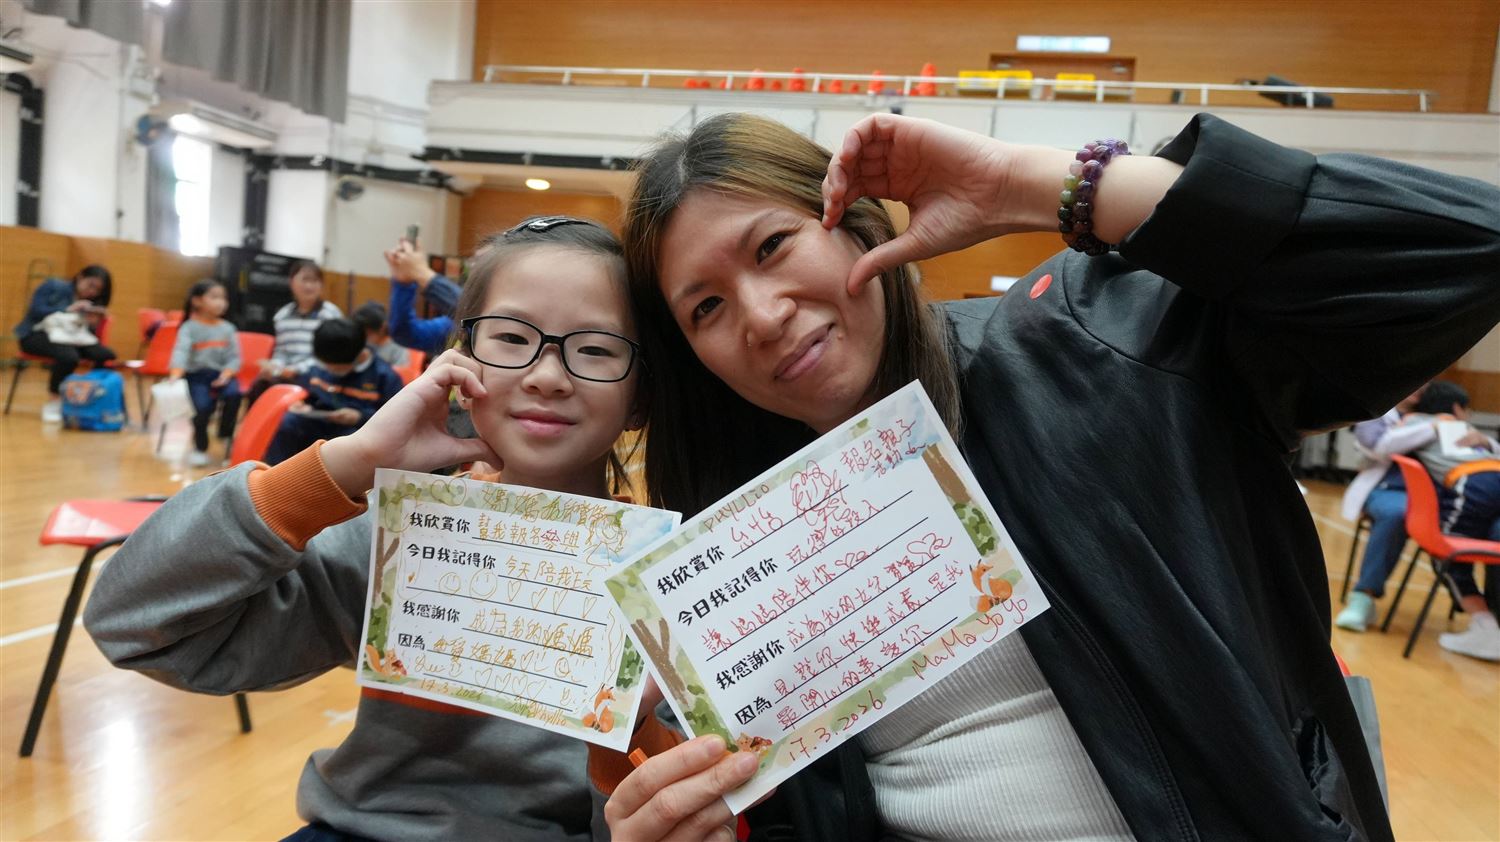 媽媽
我欣賞你 幫我報名參與
今日我記得你 今天陪我
我感謝你 成為我的媽媽
因為 媽媽
17.3.2026
Phyllio
PHYLLIO
報名親子
活動
我欣賞你
今日我記得你 玩得好投入,
讓媽媽陪伴你
我感謝你 成為我的女兒
因為 見證你快樂成長, 是我
最開心的事
MaMa YoYo
17.3.2026